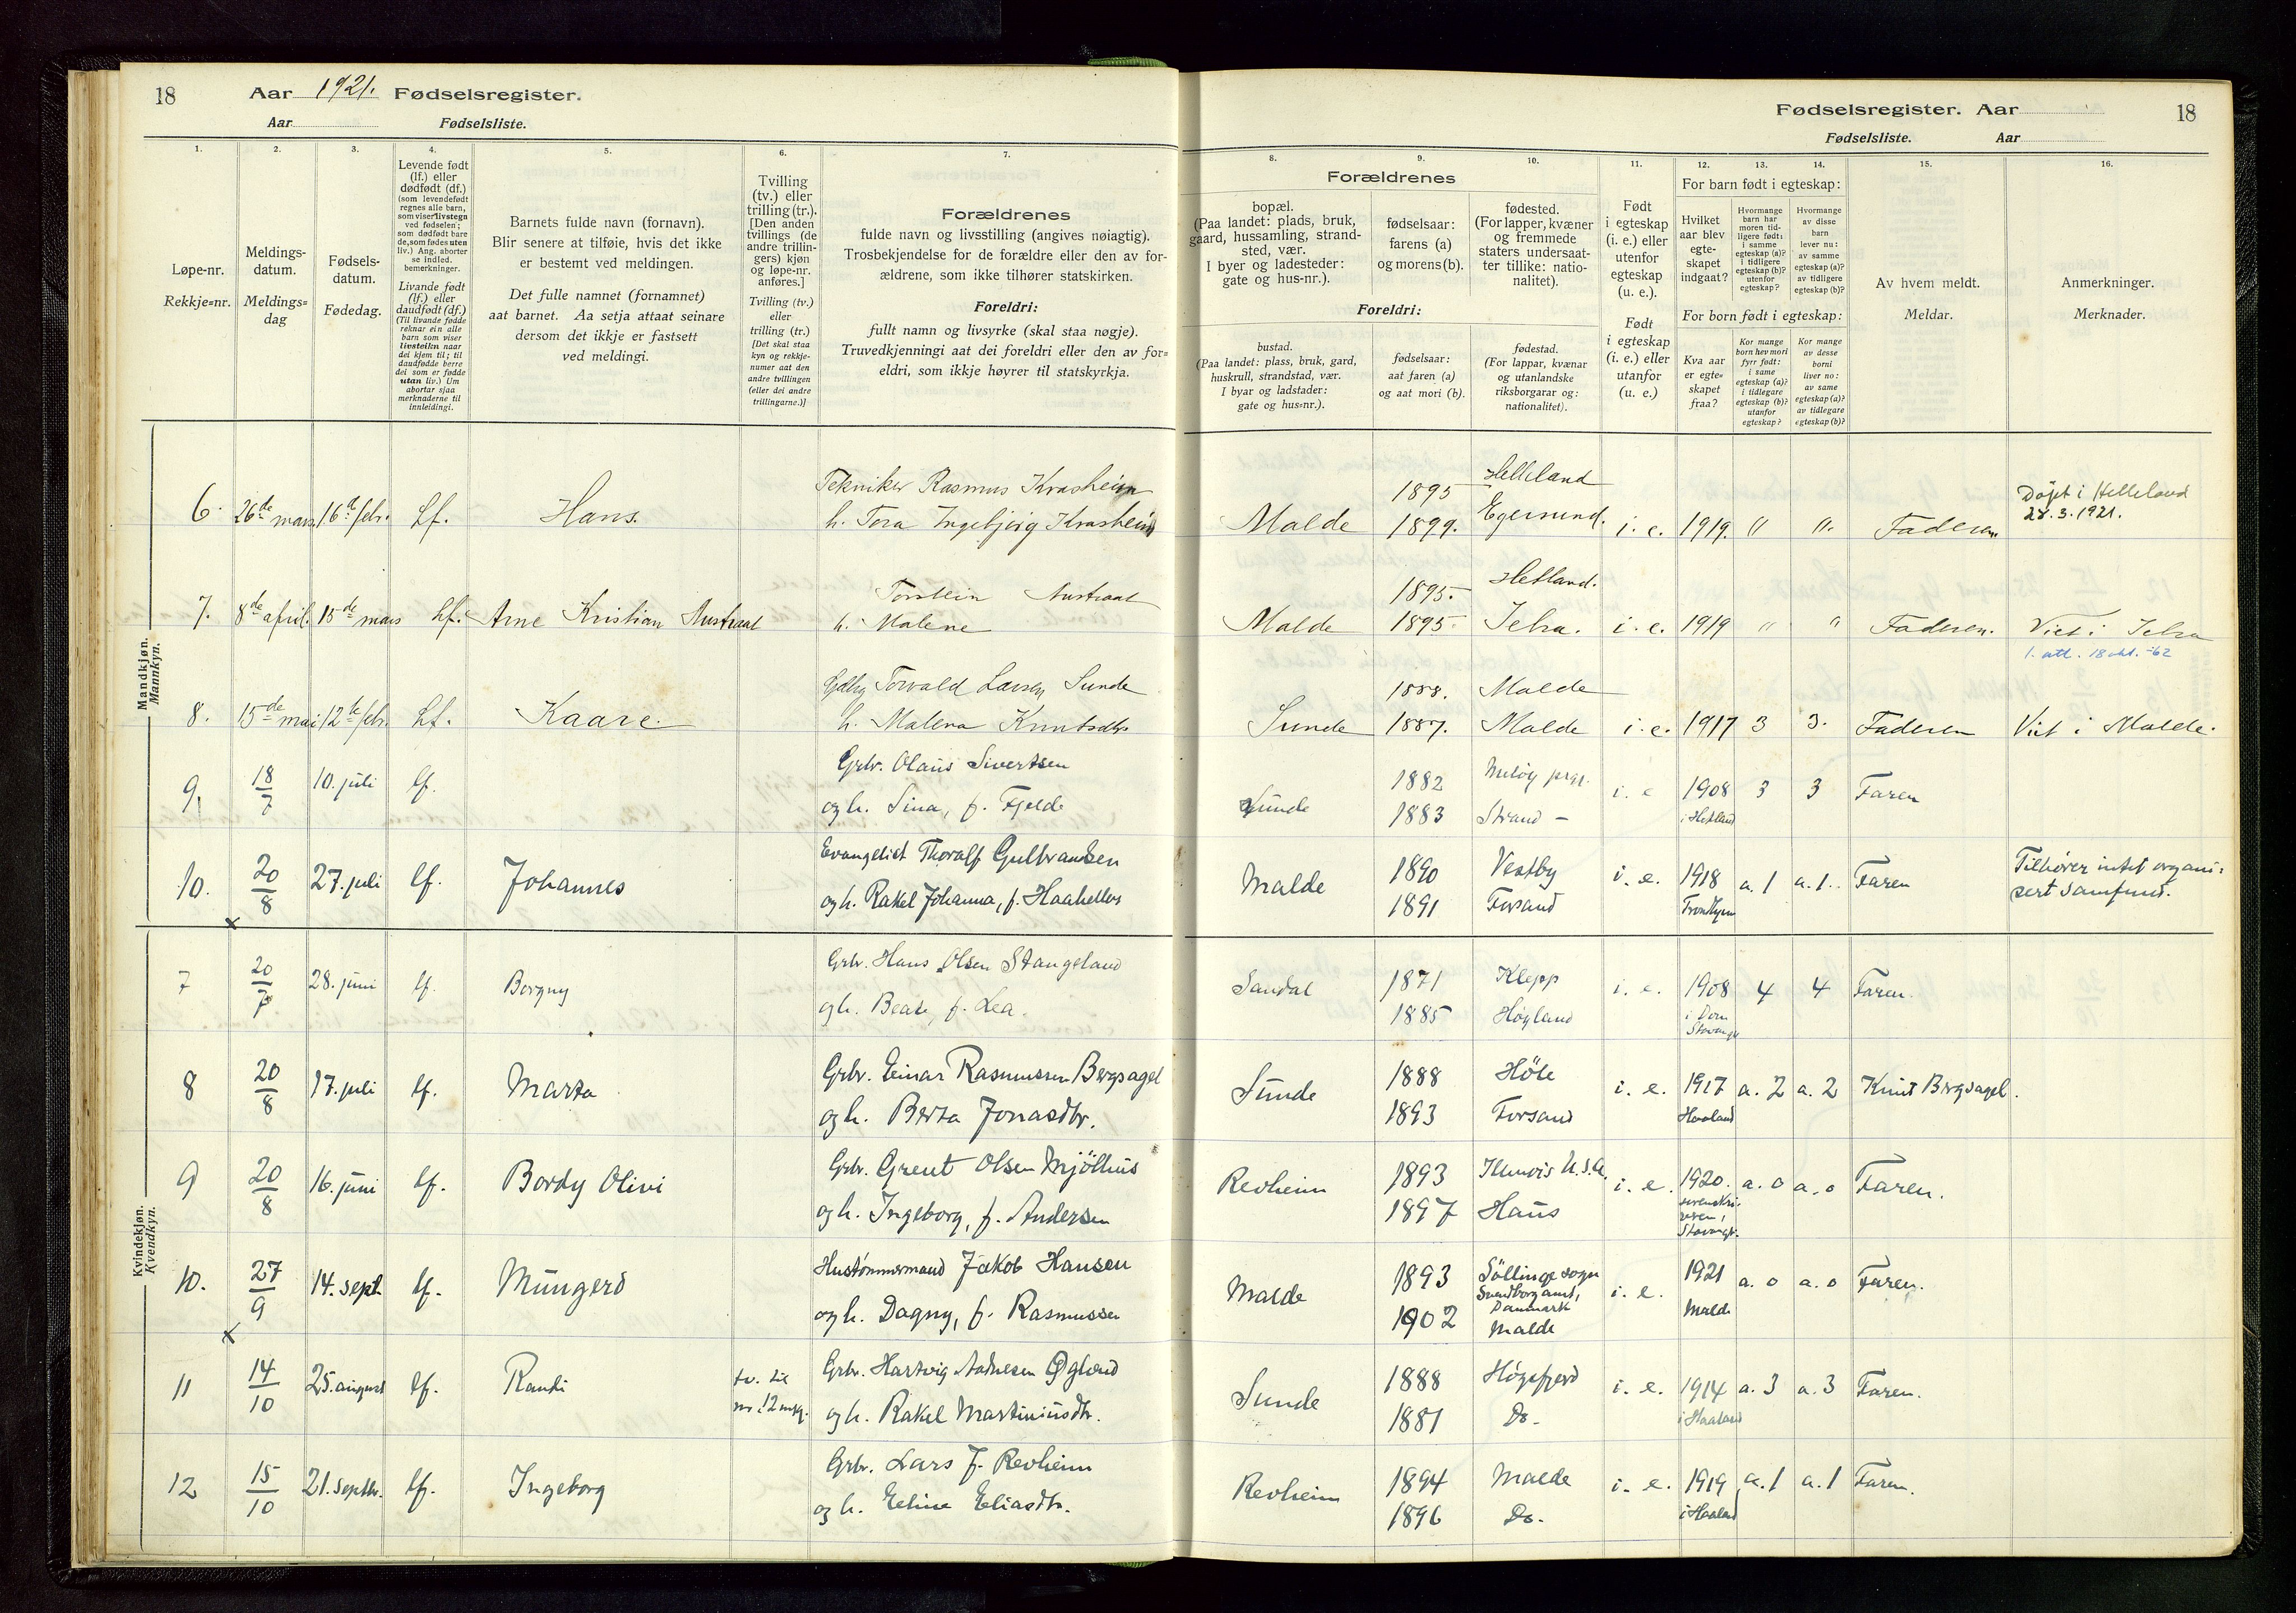 18 Aar 1921. Fødselsregister.
Aar Fødselsliste.
Fødselsregister. Aar 18
Fødselsliste. Aar
1.
Løpe-nr.
Rekkje=nr.
2.
Meldings-
datum.
Meldings=
dag
3.
Fødsels-
datum.
Fødedag.
4.
Levende født
(lf.) eller
dødfødt (df.)
(som levendefødt
regnes alle barn,
som viser livstegn
ved fødselen;
som dødfødt bare
de, som fødes uten
liv.) Ang. aborter
se indled.
bemerkninger.
Livande født
(lf.) eller
daudfødt (df.)
(Til livande fødde
reknar ein alle
barn som viser
livsteikn naar
dei kjem til; til
daudfødde berre
dei som er fødde
utan liv.) Um
abortar sjaa
merknaderne til
innleidingi.
5.
Barnets fulde navn (fornavn).
Blir senere at tilføie, hvis det ikke
er bestemt ved meldingen.
Det fulle namnet (fornamnet)
aat barnet. Aa setja attaat seinare
dersom det ikkje er fastsett
ved meldingi.
6.
Tvilling
(tv.) eller
trilling (tr.).
[Den anden
tvillings (de
andre trillin-
gers) kjøn
og løpe-nr.
anføres.]
Tvilling (tv.)
eller
trilling (tr.)
[Det skal staa
kyn og rekkje-
numer aat den
andre tvillingen
(eller dei andre
trillingarne.)]
7.
Forældrenes
fulde navn og livsstilling (angives nøiagtig).
Trosbekjendelse for de forældre eller den av for-
ældrene, som ikke tilhører statskirken.
Foreldri:
fullt namn og livsyrke (skal staa nøgje).
Truvedkjenningi aat dei foreldri eller den av for=
eldri, som ikkje høyrer til statskyrkja.
Forældrenes
8.
bopæl.
(Paa landet: plads, bruk,
gaard, hussamling, strand-
sted, vær.
I byer og ladesteder:
gate og hus-nr.).
Foreldri:
bustad.
(Paa landet: plass, bruk, gard,
huskrull, strandstad, vær.
I byar og ladstader:
gate og hus=nr.).
9.
fødselsaar:
farens (a)
og morens (b).
fødselsaar:
aat faren (a)
og aat mori (b).
10.
fødested.
(For lapper, kvæner
og fremmede
staters undersaat-
ter tillike: natio-
nalitet).
fødestad.
(For lappar, kvænar
og utanlandske
riksborgarar og:
nationalitet).
11.
Født
i egteskap
(i. e.) eller
utenfor
egteskap
(u. e.).
Født
i egteskap
(i. e.) eller
utanfor
(u. e.)
12.
For barn født i egteskap:
Hvilket
aar blev
egte-
skapet
indgaat?
For born født i egteskap:
Kva aar
er egte=
skapet
fraa?
13.
Hvormange
barn har
moren tid-
ligere født:
i samme
egteskap (a)?
i tidligere
egteskap (b)?
utenfor
egteskap?
Kor mange
born hev mori
fyrr født:
i same
egteskap (a)?
i tidlegare
egteskap (b)?
utanfor
egteskap?
14.
Hvormange
av disse
barn
lever nu:
av samme
egteskap (a)?
av tidligere
egteskap (b)?
Kor mange
av desse
borni
liver no:
av same
egteskap (a)?
av tidlegare
egteskap (b)?
15.
Av hvem meldt.
Meldar.
16.
Anmerkninger.
Merknader.
Mandkjøn.
Mannkyn.
6. 26de mars 16de febr. Lf. Hans. Tekniker Rasmus Krosheim Malde 1895 Helleland i. e. 1919. " ". Faderen Døpt i Helleland
h. Tora Ingebjørg Krosheim 1899. Egersund. 28.3.1921.
7. 8de april. 15de mars Lf. Arne Kristian Austraat Torstein Austraat Malde 1895. Hetland. i. e. 1919 " " Faderen. Viet i Jelsa
h. Malene 1895. Jelsa. 1. att. 18 okt. -62
8. 15de mai 12te febr. Lf. Kaare. Torvald Larsen Sunde Sunde 1888. Malde i. e. 1917 3 3. Faderen Viet i Malde.
h. Malena Knutsdtr 1887. Malde
9. 18/7 10. juli lf. Grbr. Olaus Sivertsen Sunde 1882 i. e 1908 3 3 Faren
og h. Sina, f. Fjelde 1883 Strand – i Hetland
10. 20/8 27. juli lf. Johannes Evangelist Thoralf Gulbrandsen Malde 1890 Vestby i. e. 1918 a. 1 a. 1.. Faren Tilhører intet organi-
x og h. Rakel Johanna, f. Haaheller 1891 Forsand Trondhjem sert samfund.
Kvindekjøn.
Kvendkyn.
7 20/7 28. juni lf. Borgny Grbr. Hans Olsen Stangeland Sandal 1871 Klepp i. e. 1908 4 4 Faren.
og h. Beate, f. Lea. 1885 Høgland i Dom Stavanger
8 20/8 17. juli lf. Marta Grbr. Einar Rasmussen Bergsagel Sunde 1888 Höle i. e. 1917 a. 2 a. 2 Knut Bergsagel.
og h. Berta Jonasdtr. 1893 Forsand Haaland
9 20/8 16. juni lf. Bordy Olivi Grbr. Greut Olsen Mjölhus Revheim 1893 Illinois U.S.A. i. e. 1920. a. 0 a. 0 Faren.
og h. Ingeborg, f. Andersen 1897 Haus Stavanger.
10. 27/9 14. sept lf. Mungerd Hustømmermand Jakob Hansen Malde 1893 Söllinge sogn Svendborg amt, Danmark i. e. 1921 a. 0 a. 0 Faren.
x og h. Dagny, f. Rasmussen 1902 Malde Malde
11 14/10 25. august lf. Randi tv. til nr. 12 Grbr. Hartvig Aadnesen Øglænd Sunde 1888 Høgsfjord i. e. 1914 a. 3 a. 3 Faren.
og h. Rakel Martiniusdtr. 1881 Do. i Haaland
12 15/10 21. septbr. lf. Ingeborg Grbr. Lars J. Revheim Revheim 1894 Malde i. e. 1919 a. 1 a. 1 Faren.
og h. Eline Eliasdtr. 1896 Do. i Haaland